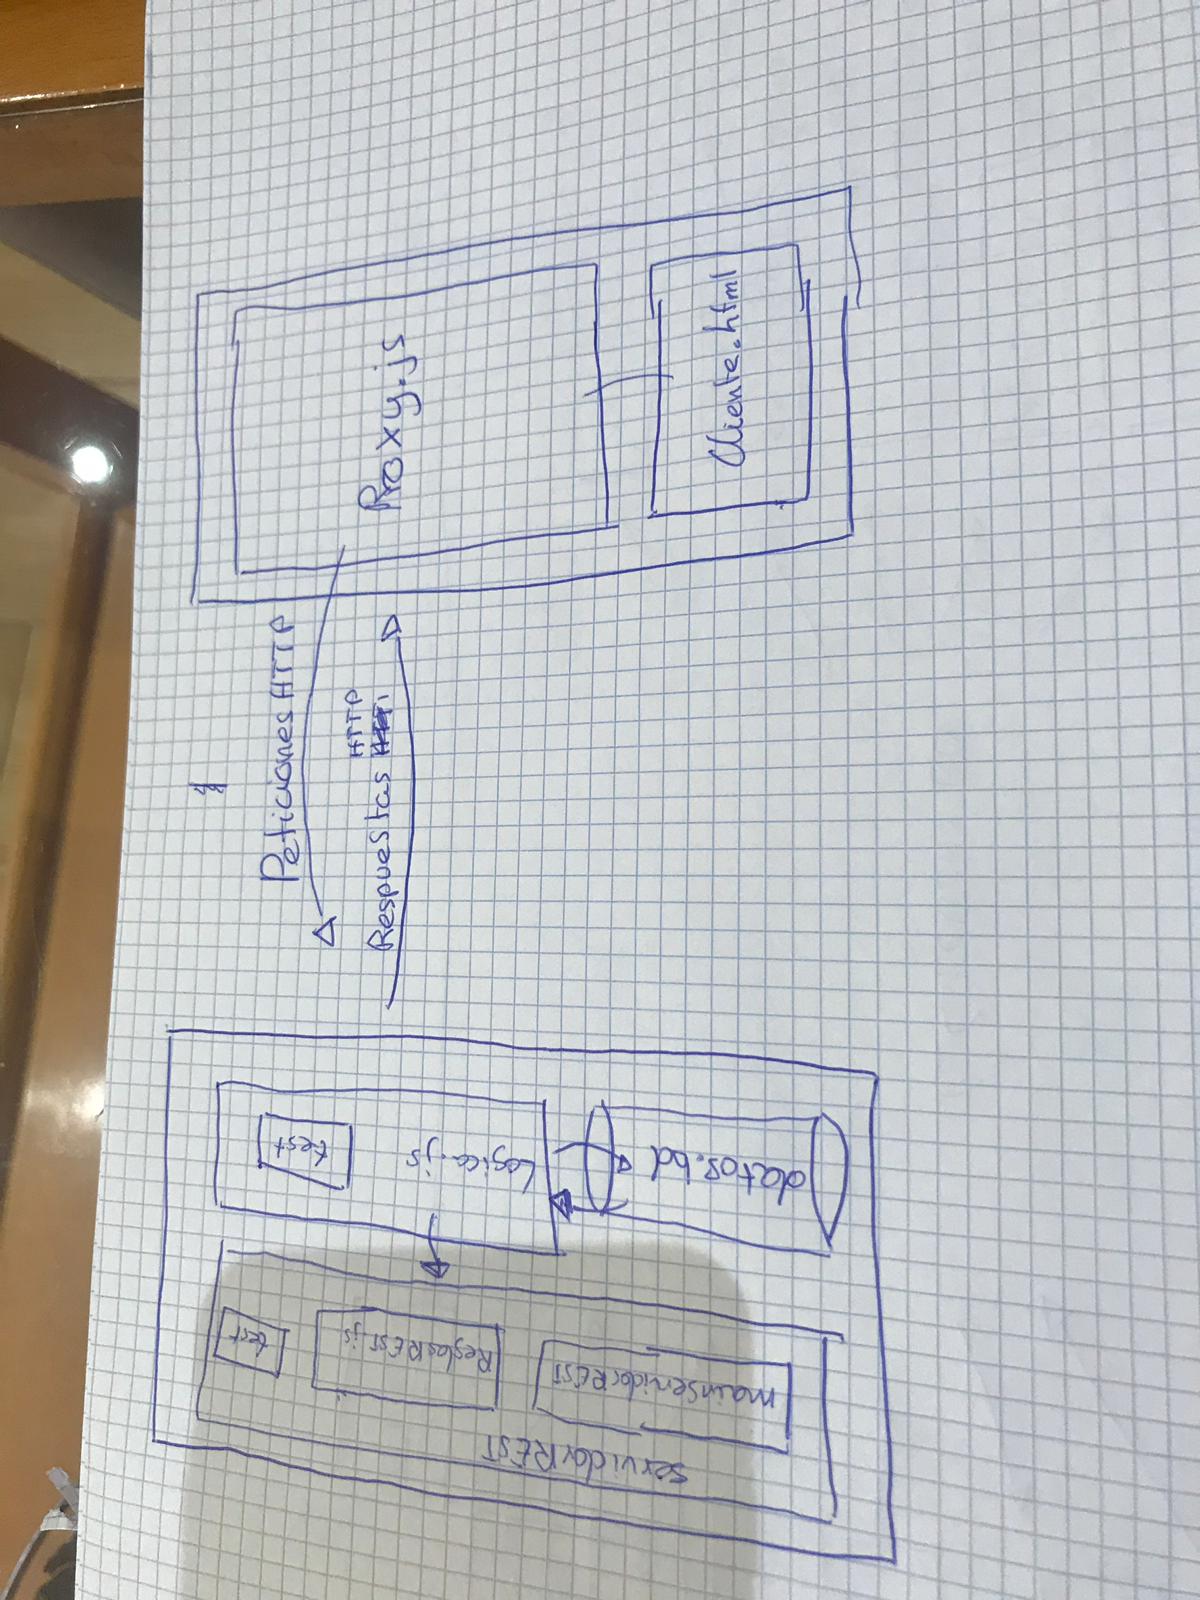 Proxy.js
Cliente.html
Peticiones HTTP
HTTP
Respuestas
test
Logica.js
datos.bd
test
ReglasREST.js
mainServidorREST
servidorREST